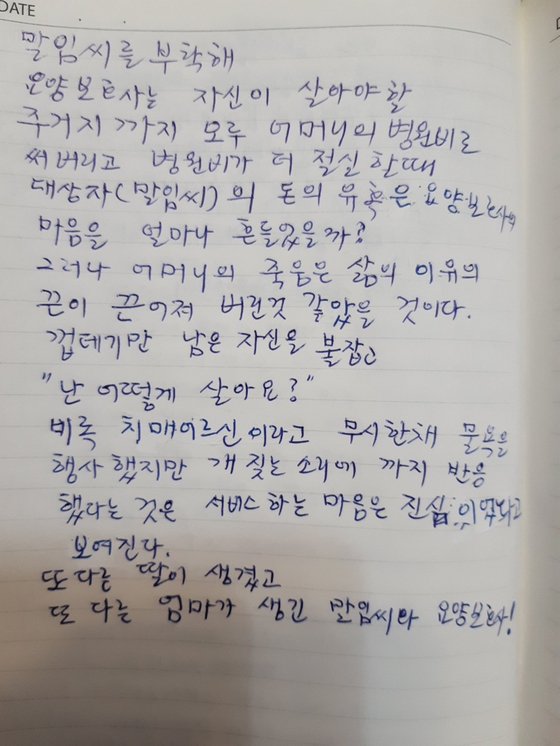 DATE
말임씨를 부탁해
요양보호사는 자신이 살아야할
주거지 까지 모두 어머니의 병원비로
써버리고 병원비가 더 절실 한때
대상자(말임씨)의 돈의 유혹은 요양보호사의
마음을 얼마나 흔들었을까?
그러나 어머니의 죽음은 삶의 이유의
끈이 끈어져 버린것 같았을 것이다.
껍데기만 남은 자신을 붙잡고
"난 어떻게 살아요?"
비록 치매어르신이라고 무시한채 물욕을
행사했지만 개 짖는소리에 까지 반응
했다는 것은 서비스하는 마음은 진심이였다고
보여진다.
또다른 딸이 생겼고
또 다른 엄마가 생긴 말임씨와 요양보호사!